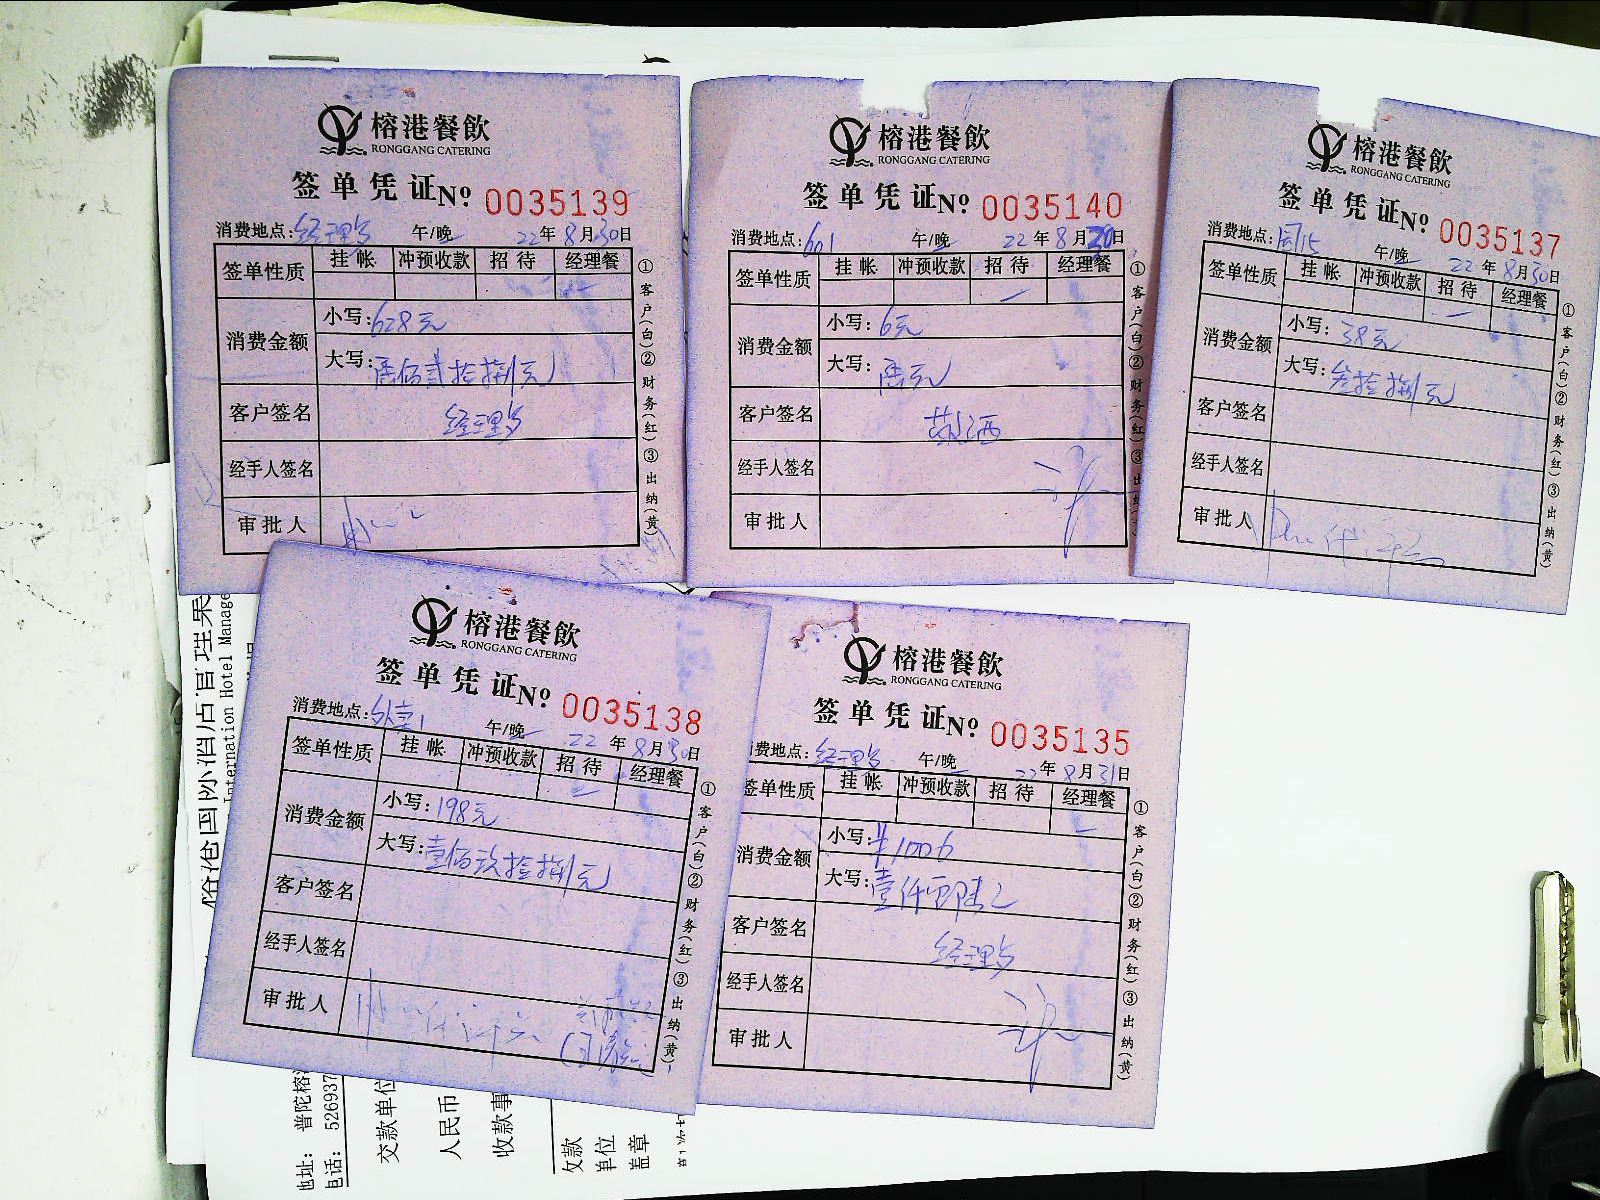 榕港餐飲
RONGGANG CATERING
签单凭证 № 0035139
消费地点:经理餐 午/晚 22年8月30日
签单性质 挂帐 冲预收款 招待 经理餐
消费金额 小写:628元
大写:陆佰贰拾捌元
客户签名 经理餐
经手人签名
审批人
①客户(白)②财务(红)③出纳(黄)
榕港餐飲
RONGGANG CATERING
签单凭证 № 0035140
消费地点:601 午/晚 22年8月30日
签单性质 挂帐 冲预收款 招待 经理餐
消费金额 小写:6元
大写:陆元
客户签名
经手人签名
审批人
①客户(白)②财务(红)③出
榕港餐飲
RONGGANG CATERING
签单凭证 № 0035137
消费地点: 午/晚 22年8月30日
签单性质 挂帐 冲预收款 招待 经理餐
消费金额 小写:38元
大写:叁拾捌元
客户签名
经手人签名
审批人
①客户(白)②财务(红)③出纳(黄)
榕港餐飲
RONGGANG CATERING
签单凭证 № 0035138
消费地点:外卖1 午/晚 22年8月30日
签单性质 挂帐 冲预收款 招待 经理餐
消费金额 小写:198元
大写:壹佰玖拾捌元
客户签名
经手人签名
审批人
①客户(白)②财务(红)③出纳(黄)
榕港餐飲
RONGGANG CATERING
签单凭证 № 0035135
消费地点:经理餐 午/晚 22年8月31日
签单性质 挂帐 冲预收款 招待 经理餐
消费金额 小写:¥1006
大写:壹仟零陆元
客户签名 经理餐
经手人签名
审批人
①客户(白)②财务(红)③出纳(黄)
International Hotel Manage
地址: 普陀榕
电话: 526937
交款单位
人民币
收款事
收款
单位
盖章